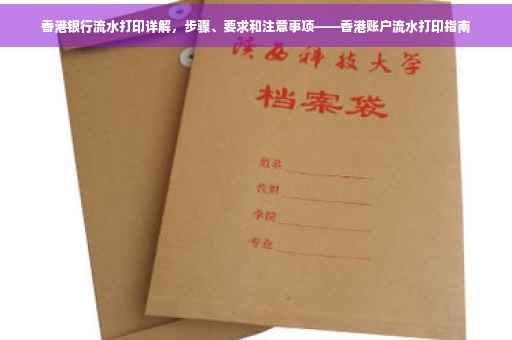 香港银行流水打印详解，步骤、要求和注意事项——香港账户流水打印指南
陕西科技大学
档案袋
姓名
性别
学院
专业